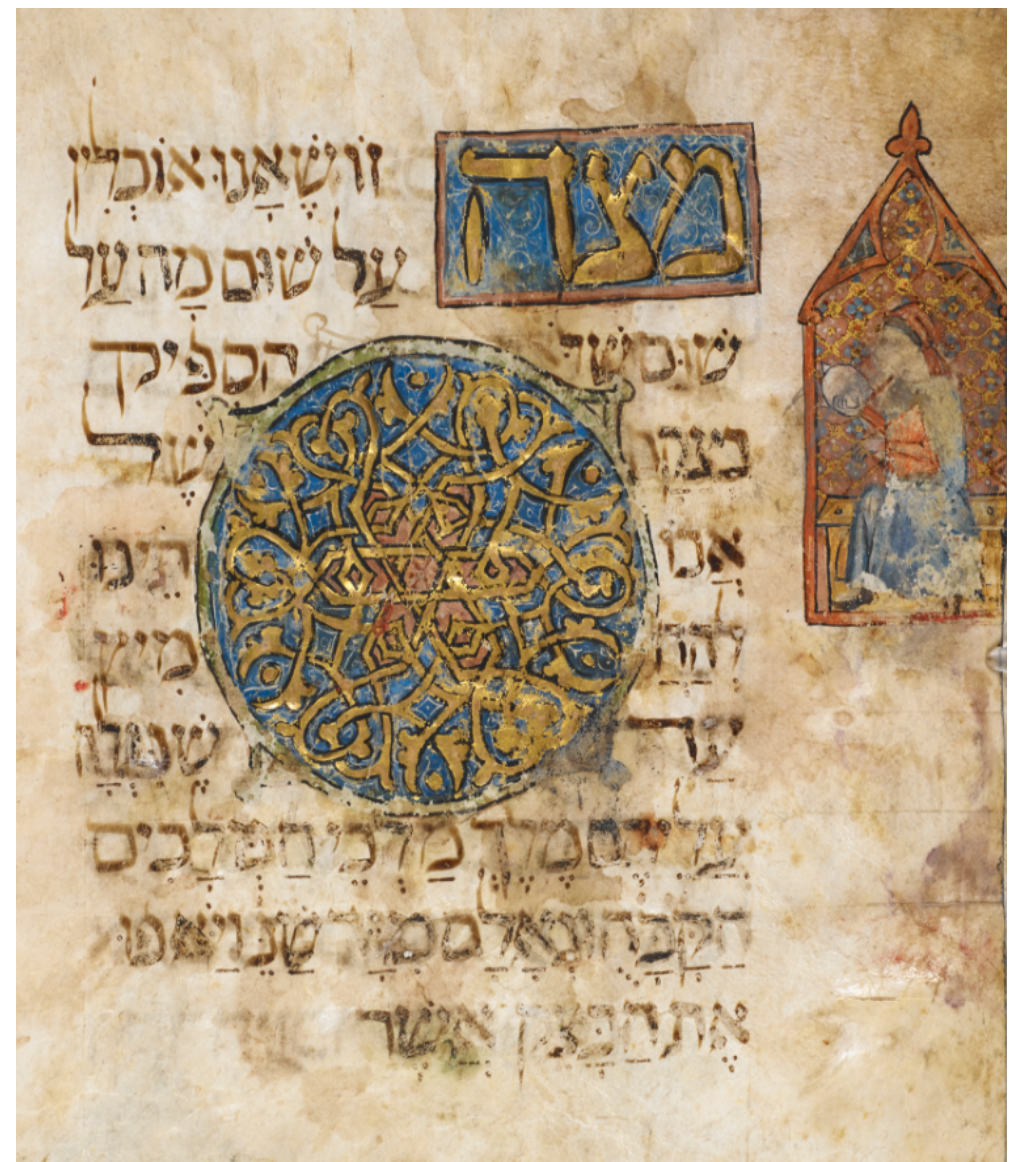 מצה זוֹ שֶׁאָנוּ אוֹכְלִין
עַל שׁוּם מַה עַל
שׁוּם שֶׁלֹא הִסְפִּיק
בְּצֵקָם שֶׁל
אֲבוֹ תֵינוּ
לְהַחֲ מִיץ
עַד שֶׁנִּגְלָה
עֲלֵיהֶם מֶלֶךְ מַלְכֵי הַמְּלָכִים
הַקָּבָּה וּגְאָלָם מִיָּד שֶׁנֶּ וַיֹּאפוּ
אֶת הַבָּצֵק אֲשֶׁר